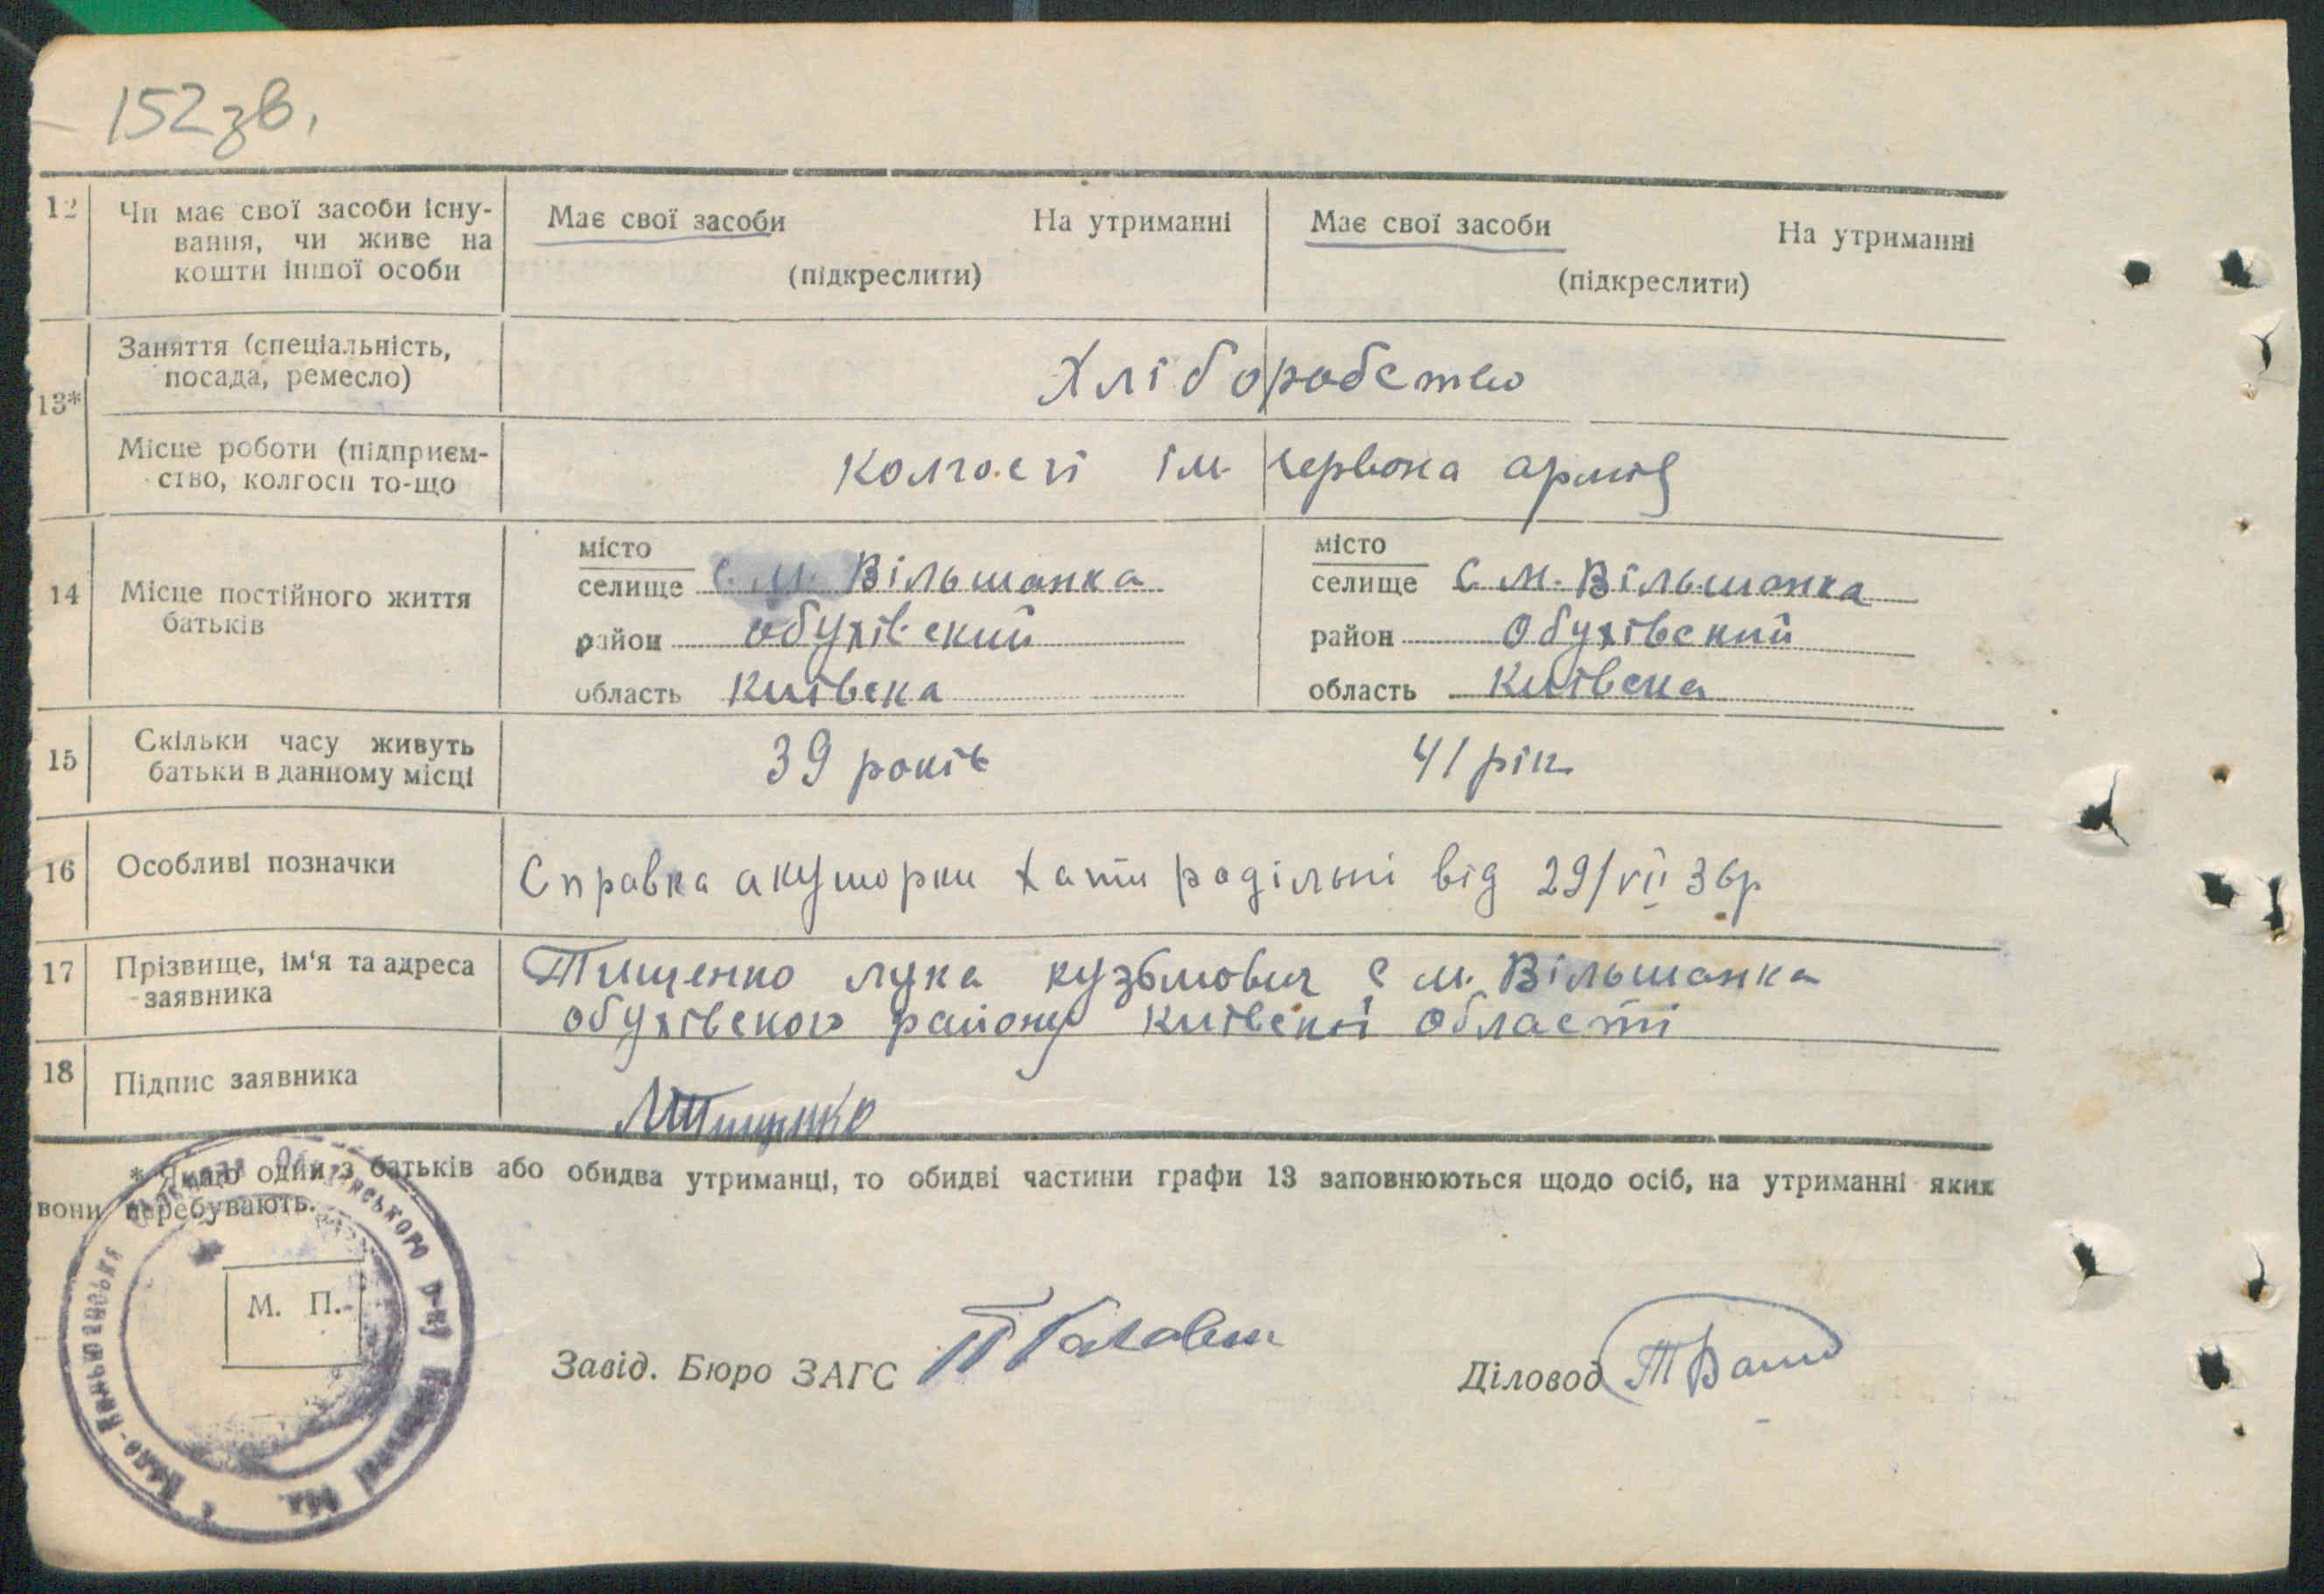 152 зв.
12 Чи має свої засоби існу-
вання, чи живе на
кошти іншої особи
Має свої засоби На утриманні
(підкреслити)
Має свої засоби На утриманні
(підкреслити)
13*
Заняття (спеціальність,
посада, ремесло)
Хліборобство
Місце роботи (підприєм-
ство, колгосп то-що
колгосп ім. червона армія
14 Місце постійного життя
батьків
місто
селище с. М. Вільшанка
район обухівский
область Київска
місто
селище с М. Вільшанка
район Обухівский
область Київска
15 Скільки часу живуть
батьки в данному місці
39 років 41 рік
16 Особливі позначки
Справка акушорки хати родільні від 29/VII 36р
17 Прізвище, ім'я та адреса
заявника
Тищенко лука кузьмович с м. Вільшанка
обухівского району київскої області
18 Підпис заявника
Л Тищенко
* Якщо один з батьків або обидва утриманці, то обидві частини графи 13 заповнюються щодо осіб, на утриманні яких
вони перебувають.
М. П.
Завід. Бюро ЗАГС
Діловод